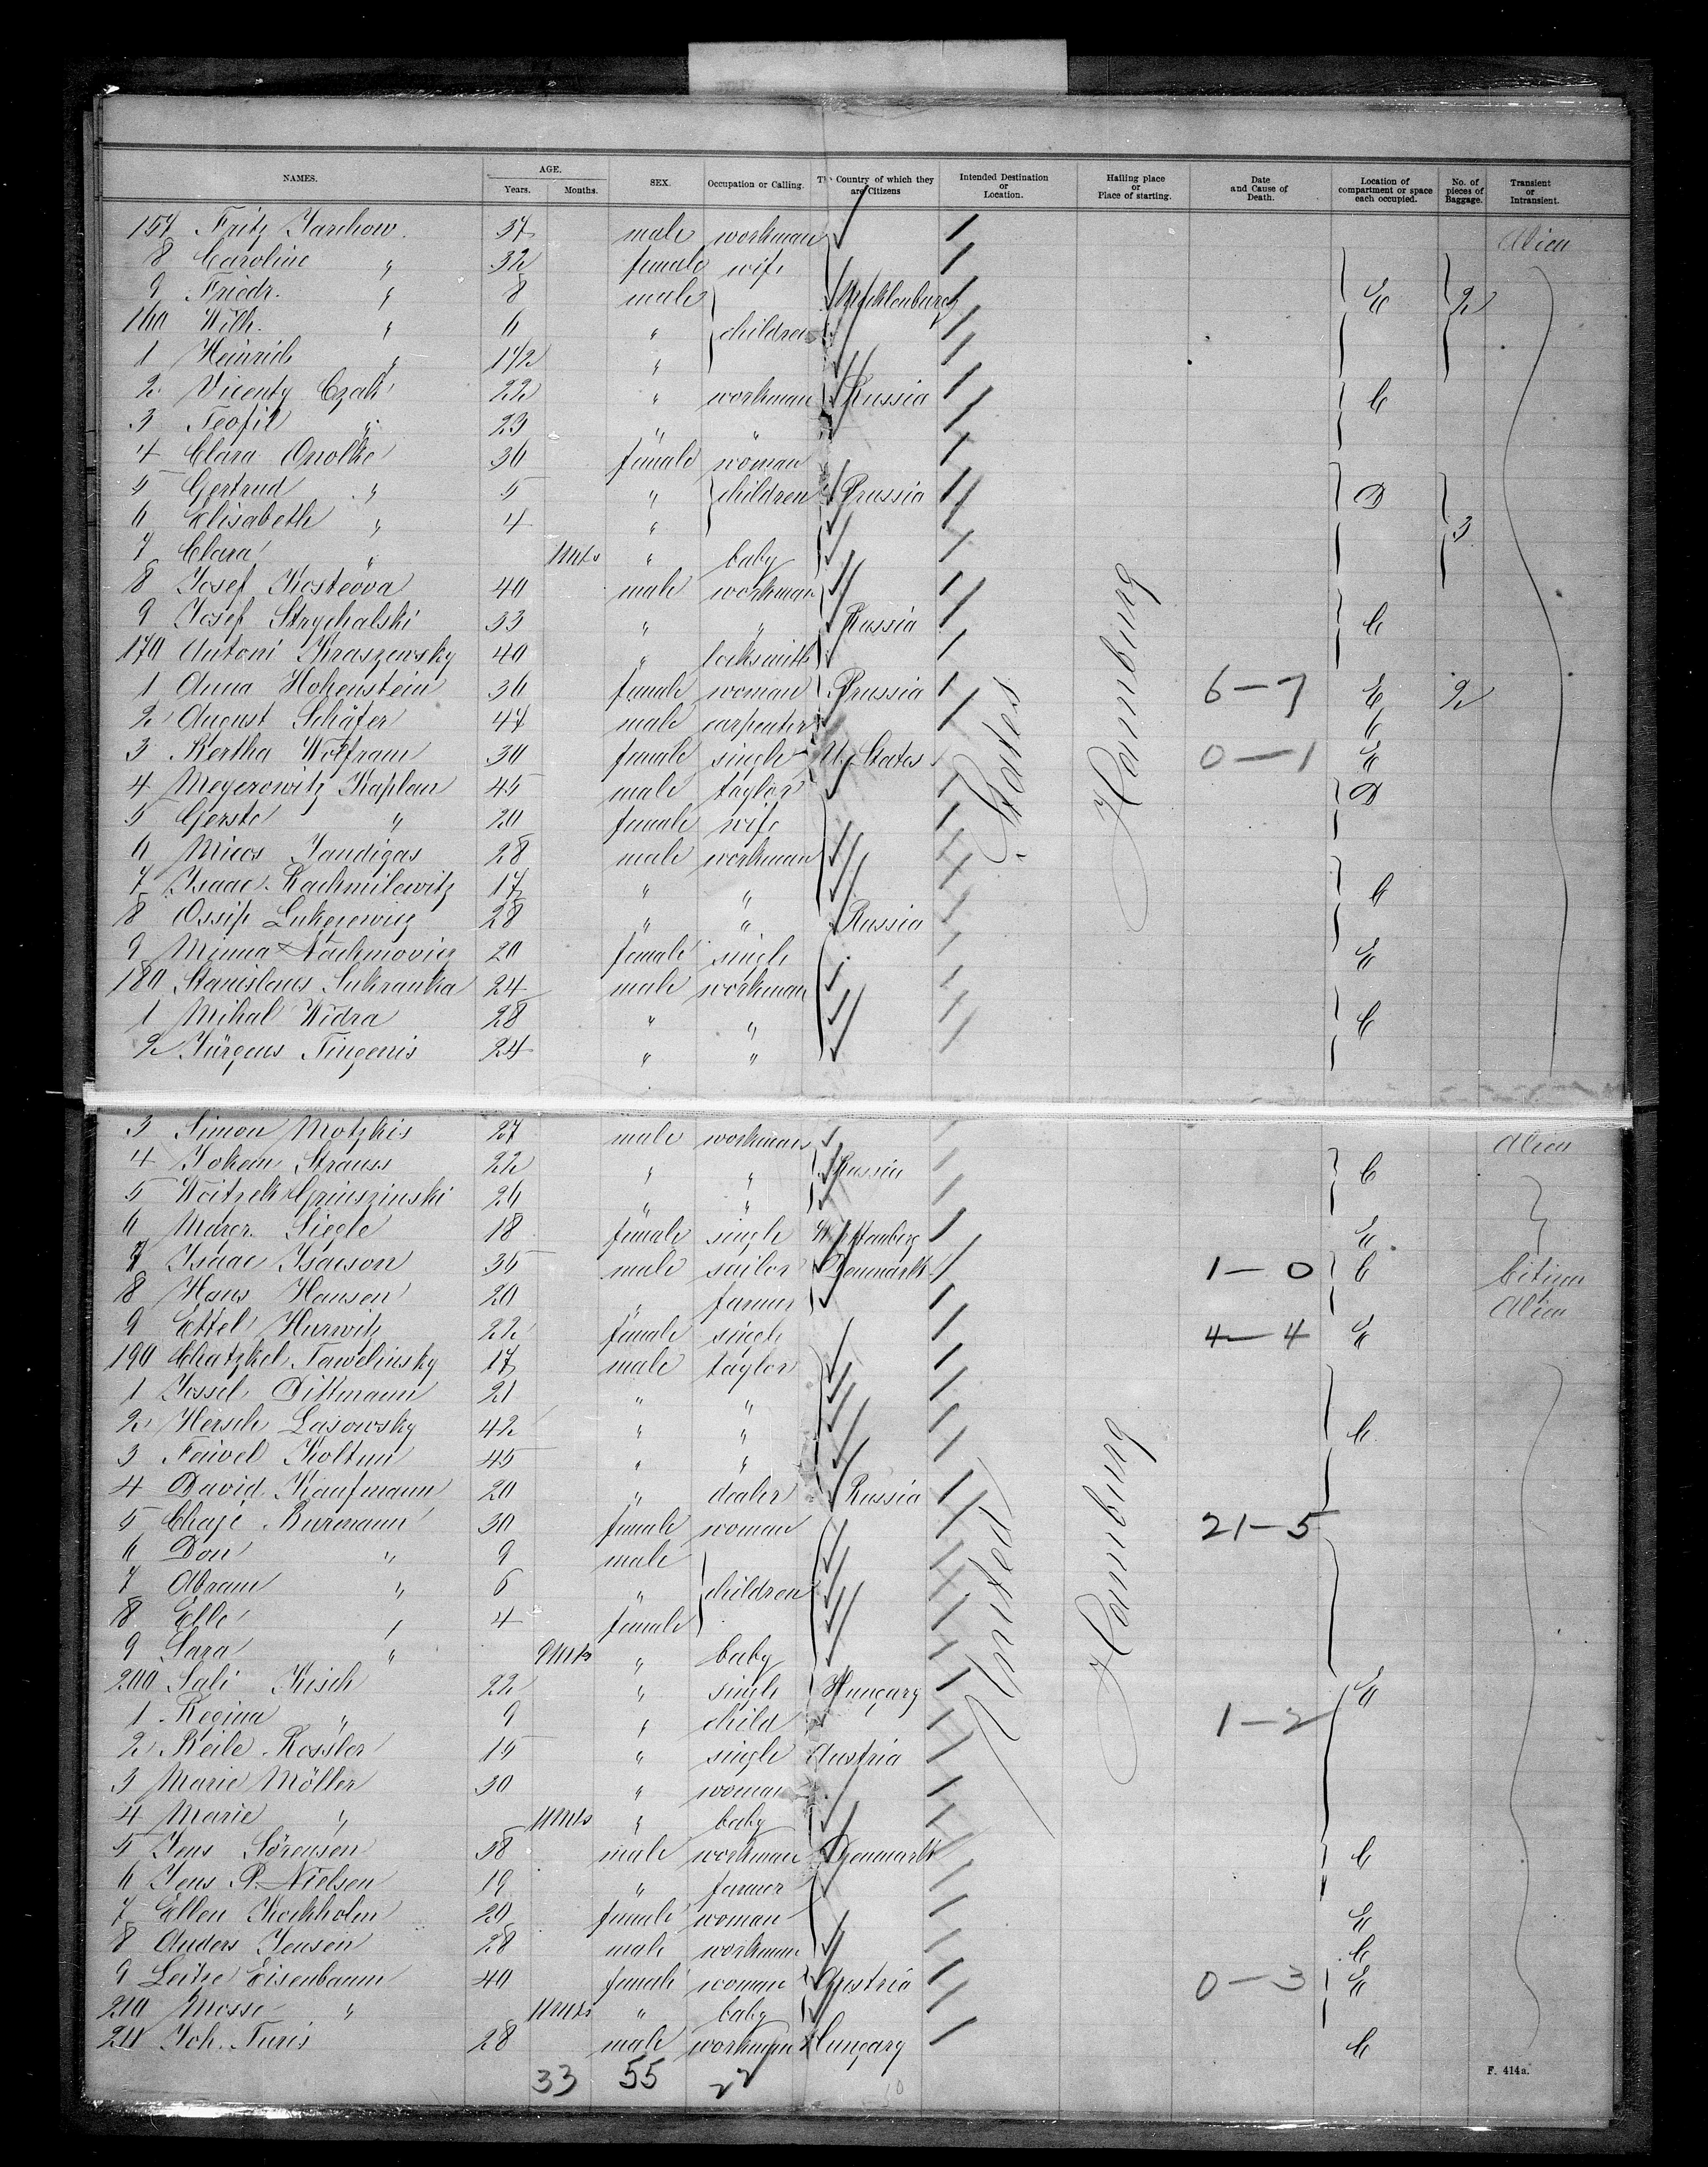 NAMES. AGE. Years. Months. SEX. Occupation or Calling. The Country of which they are Citizens Intended Destination or Location. Hailing place or Place of starting. Date and Cause of Death. Location of compartment or space each occupied. No. of pieces of Baggage. Transient or Intransient.
157 Fritz Jarchow 37 male workman Alien
8 Caroline " 32 female wife
9 Friedr. " 8 male Mecklenburg E 2
160 Wilh. " 6 " children
1 Heinrich " 1 1/2 "
2 Vicenty Czak 22 " workman Russia C
3 Teofil " 23 " "
4 Clara 36 female woman
5 Gertrud " 5 " children Prussia D
6 Elisabeth " 4 " 3
7 Clara " 11 Mts " baby
8 Josef 40 male workman
9 Josef Strychalski 33 " " Russia C
170 Antoni Kraszewsky 40 " locksmith
1 Anna Hohenstein 36 female woman Prussia 6-7 E 2
2 August Schäfer 47 male carpenter C
3 Bertha Wolfram 30 female single U. States 0-1 E
4 Meyerowitz Kaplan 45 male taylor D
5 Gerste " 20 female wife
6 28 male workman
7 Isaac Rachmilewitz 17 " " C
8 Ossip 28 " " Russia
9 Minna 20 female single E
180 Stanislaus 24 male workman
1 Mihal Widra 28 " " C
2 Jürgens 24 " "
States
Hamburg
3 Simon Motzkis 27 male workman Alien
4 Strauss 22 " " Russia C
5 Woitzek 26 " "
6 Margr. Siegle 18 female single E
7 Isaac Isacson 35 male sailor Denmark 1-0 C Citizen
8 Hans Hansen 20 " farmer Alien
9 Ettel Hurwitz 22 female single 4-4 E
190 Chatzkel Tawelinsky 17 male taylor
1 Jossel Dittmann 21 " "
2 Hersch Lasowsky 42 " " C
3 Feivel Koltun 45 " "
4 David Kaufmann 20 " dealer Russia
5 Chaje Burmann 30 female woman 21-5
6 Don " 9 male
7 Abram " 6 " children
8 Elle " 4 female
9 Sara " 9 Mts " baby
200 Sali Kisch 22 " single Hungary E
1 Regina " 9 " child 1-2
2 Reile Rossler 15 " single Austria
3 Marie Möller 30 " woman
4 Marie " 11 Mts " baby
5 Jens Sörensen 58 male workman Denmark C
6 Jens P. Nielsen 19 " farmer
7 Ellen 20 female woman E
8 Anders Jensen 28 male workman C
9 Leitze Eisenbaum 40 female woman Austria 0-3 E
210 Mosse " 11 Mts " baby
211 Joh. Turis 28 male workman Hungary C
United
Hamburg
33 55 22
10
F. 414a.